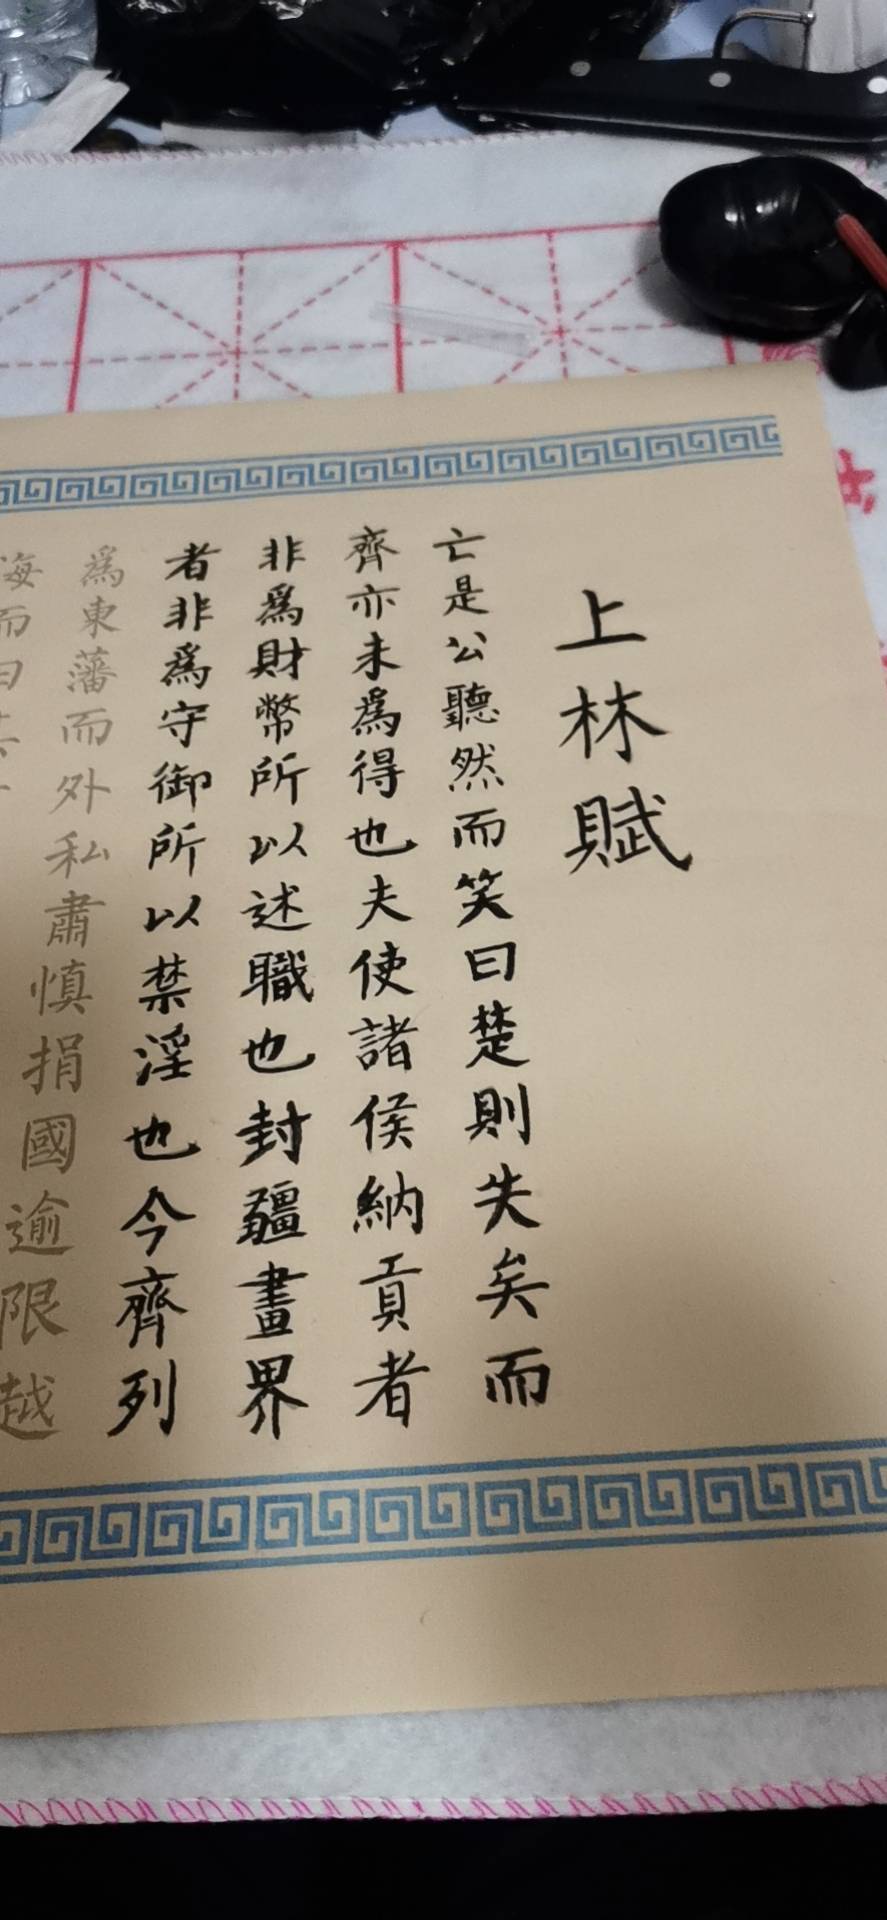 上林賦
亡是公聽然而笑曰楚則失矣而
齊亦未為得也夫使諸侯納貢者
非為財幣所以述職也封疆畫界
者非為守御所以禁淫也今齊列
為東藩而外私肅慎捐國逾限越
海而田其